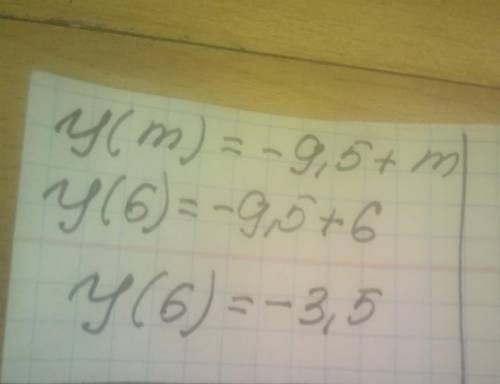 y(m) = -9,5 + m
y(6) = -9,5 + 6
y(6) = -3,5